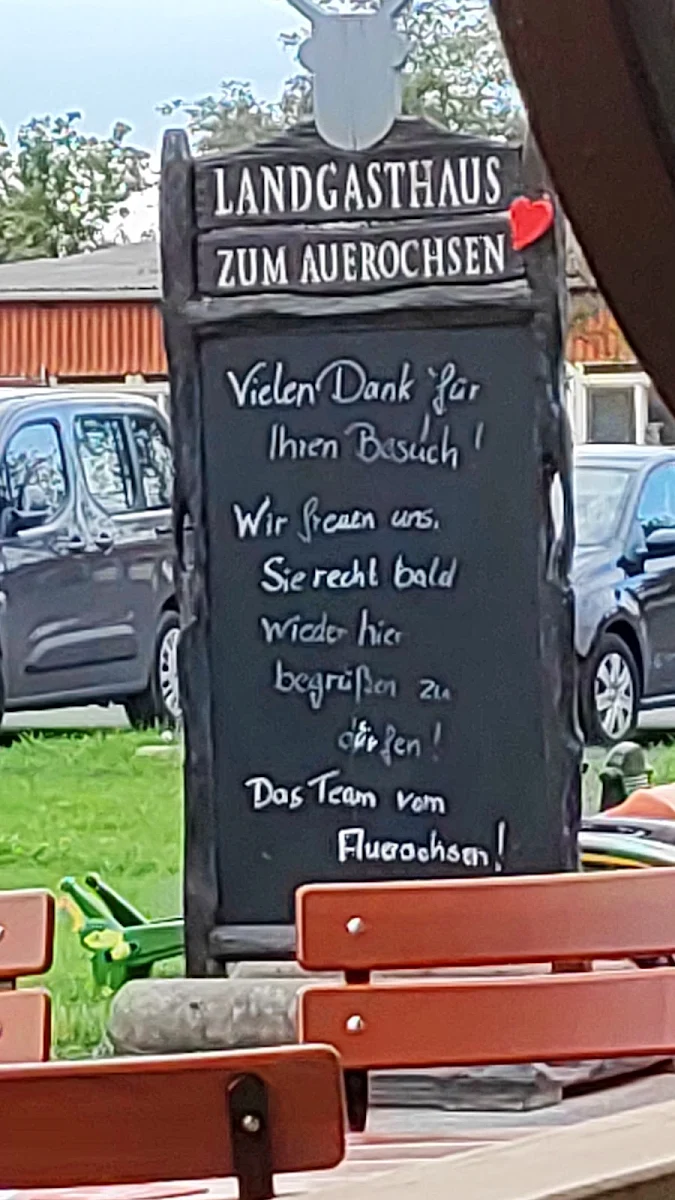 LANDGASTHAUS
ZUM AUEROCHSEN
Vielen Dank für
Ihren Besuch!
Wir freuen uns,
Sie recht bald
wieder hier
begrüßen zu
dürfen!
Das Team vom
Auerochsen!